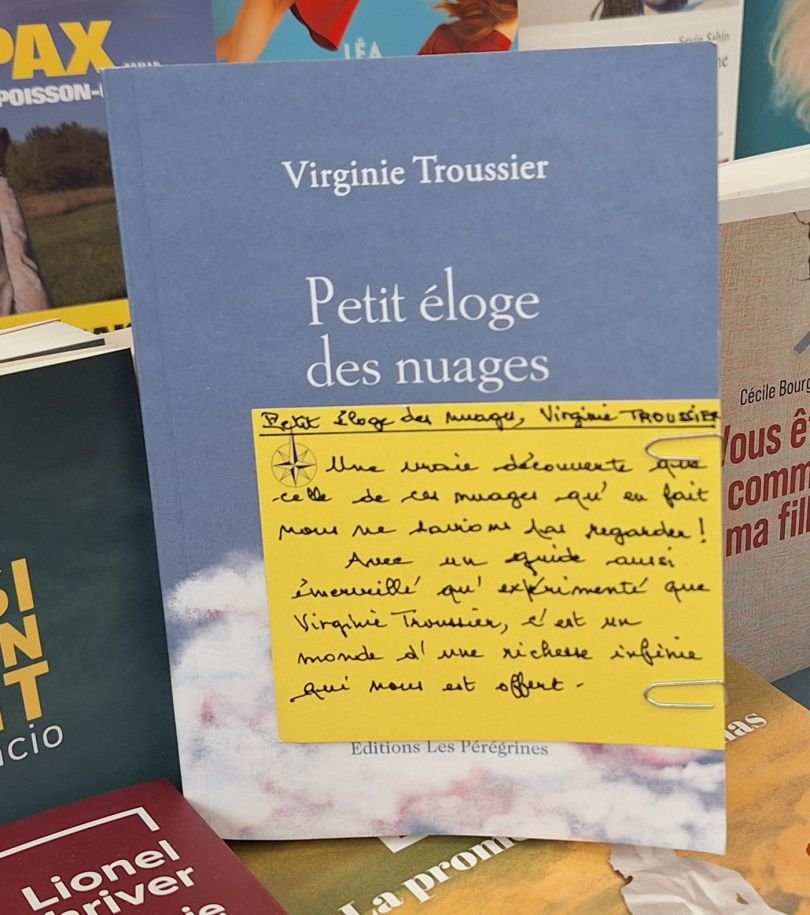 PAX
ROMAN
POISSON-
LÉA
Virginie Troussier
Petit éloge
des nuages
Petit éloge des nuages, Virginie TROUSSIER
Une vraie découverte que
celle de ces nuages qu'en fait
nous ne savions pas regarder !
Avec un guide aussi
émerveillé qu'expérimenté que
Virginie Troussier, c'est un
monde d'une richesse infinie
qui nous est offert.
Editions Les Pérégrines
Cécile Bourg
Vous ê
comm
ma fill
SI
N
T
icio
Lionel
hriver
La prom
as